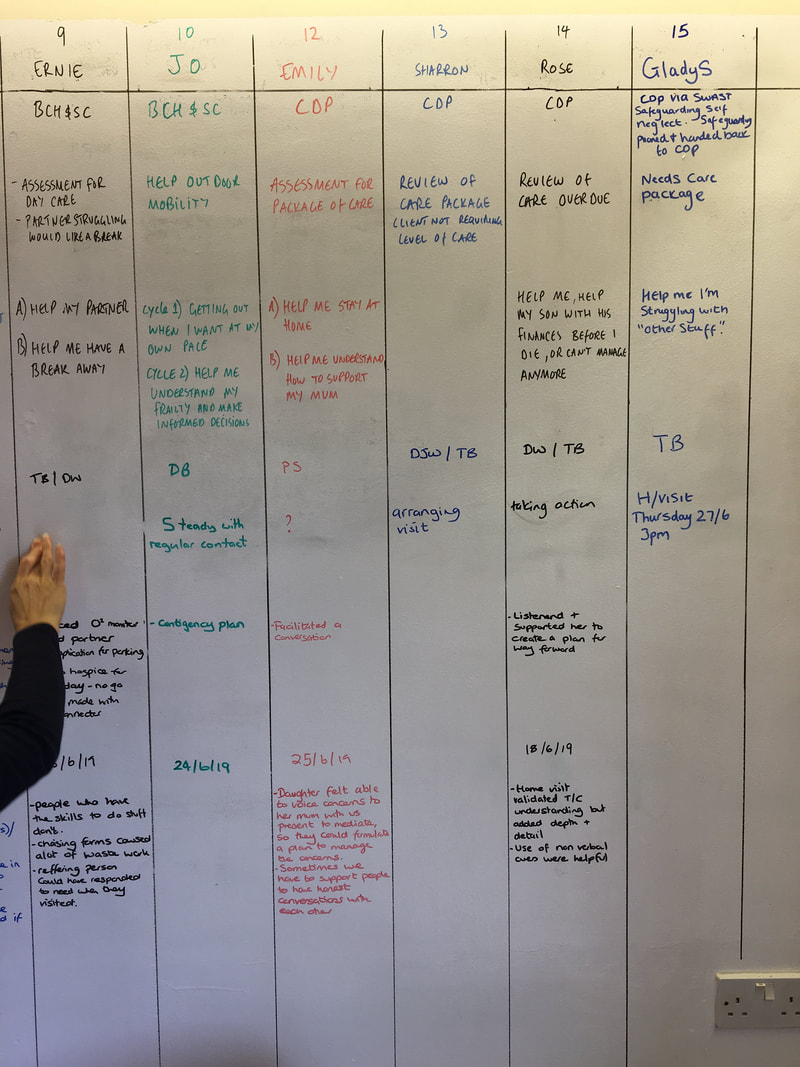 9
ERNIE
BCH & SC
- ASSESSMENT FOR
DAY CARE
- PARTNER STRUGGLING
WOULD LIKE A BREAK
A) HELP MY PARTNER
B) HELP ME HAVE A
BREAK AWAY
TB / DW
O² monitor
partner
for parking
hospice for
day - no go
made with
6/19
- people who have
the skills to do stuff
don't.
- chasing forms caused
alot of waste work
- reffering person
could have responded
to need when they
visited.
10
JO
BCH & SC
HELP OUTDOOR
MOBILITY
Cycle 1) GETTING OUT
WHEN I WANT AT MY
OWN PACE
CYCLE 2) HELP ME
UNDERSTAND MY
FRAILTY AND MAKE
INFORMED DECISIONS
DB
Steady with
regular contact
- Contigency plan
24/6/19
12
EMILY
CDP
ASSESSMENT FOR
PACKAGE OF CARE
A) HELP ME STAY AT
HOME
B) HELP ME UNDERSTAND
HOW TO SUPPORT
MY MUM
PS
?
- Facilitated a
conversation
25/6/19
- Daughter felt able
to voice concerns to
her mum with us
present to mediate,
so they could formulate
a plan to manage
the concerns.
- Sometimes we
have to support people
to have honest
conversations with
each other
13
SHARRON
CDP
REVIEW OF
CARE PACKAGE
CLIENT NOT REQUIRING
LEVEL OF CARE
DJW / TB
arranging
visit
14
ROSE
CDP
REVIEW OF
CARE OVERDUE
HELP ME, HELP
MY SON WITH HIS
FINANCES BEFORE I
DIE, OR CAN'T MANAGE
ANYMORE
DW / TB
taking action
- Listenend +
supported her to
create a plan for
way forward
18/6/19
- Home visit
validated T/C
understanding but
added depth +
detail
- Use of non verbal
cues were helpful
15
GladyS
CDP via SWAST
Safeguarding Self
neglect. - Safeguarding
phoned + handed back
to CDP
Needs Care
package
Help me I'm
Struggling with
"other Stuff".
TB
H/visit
Thursday 27/6
3pm